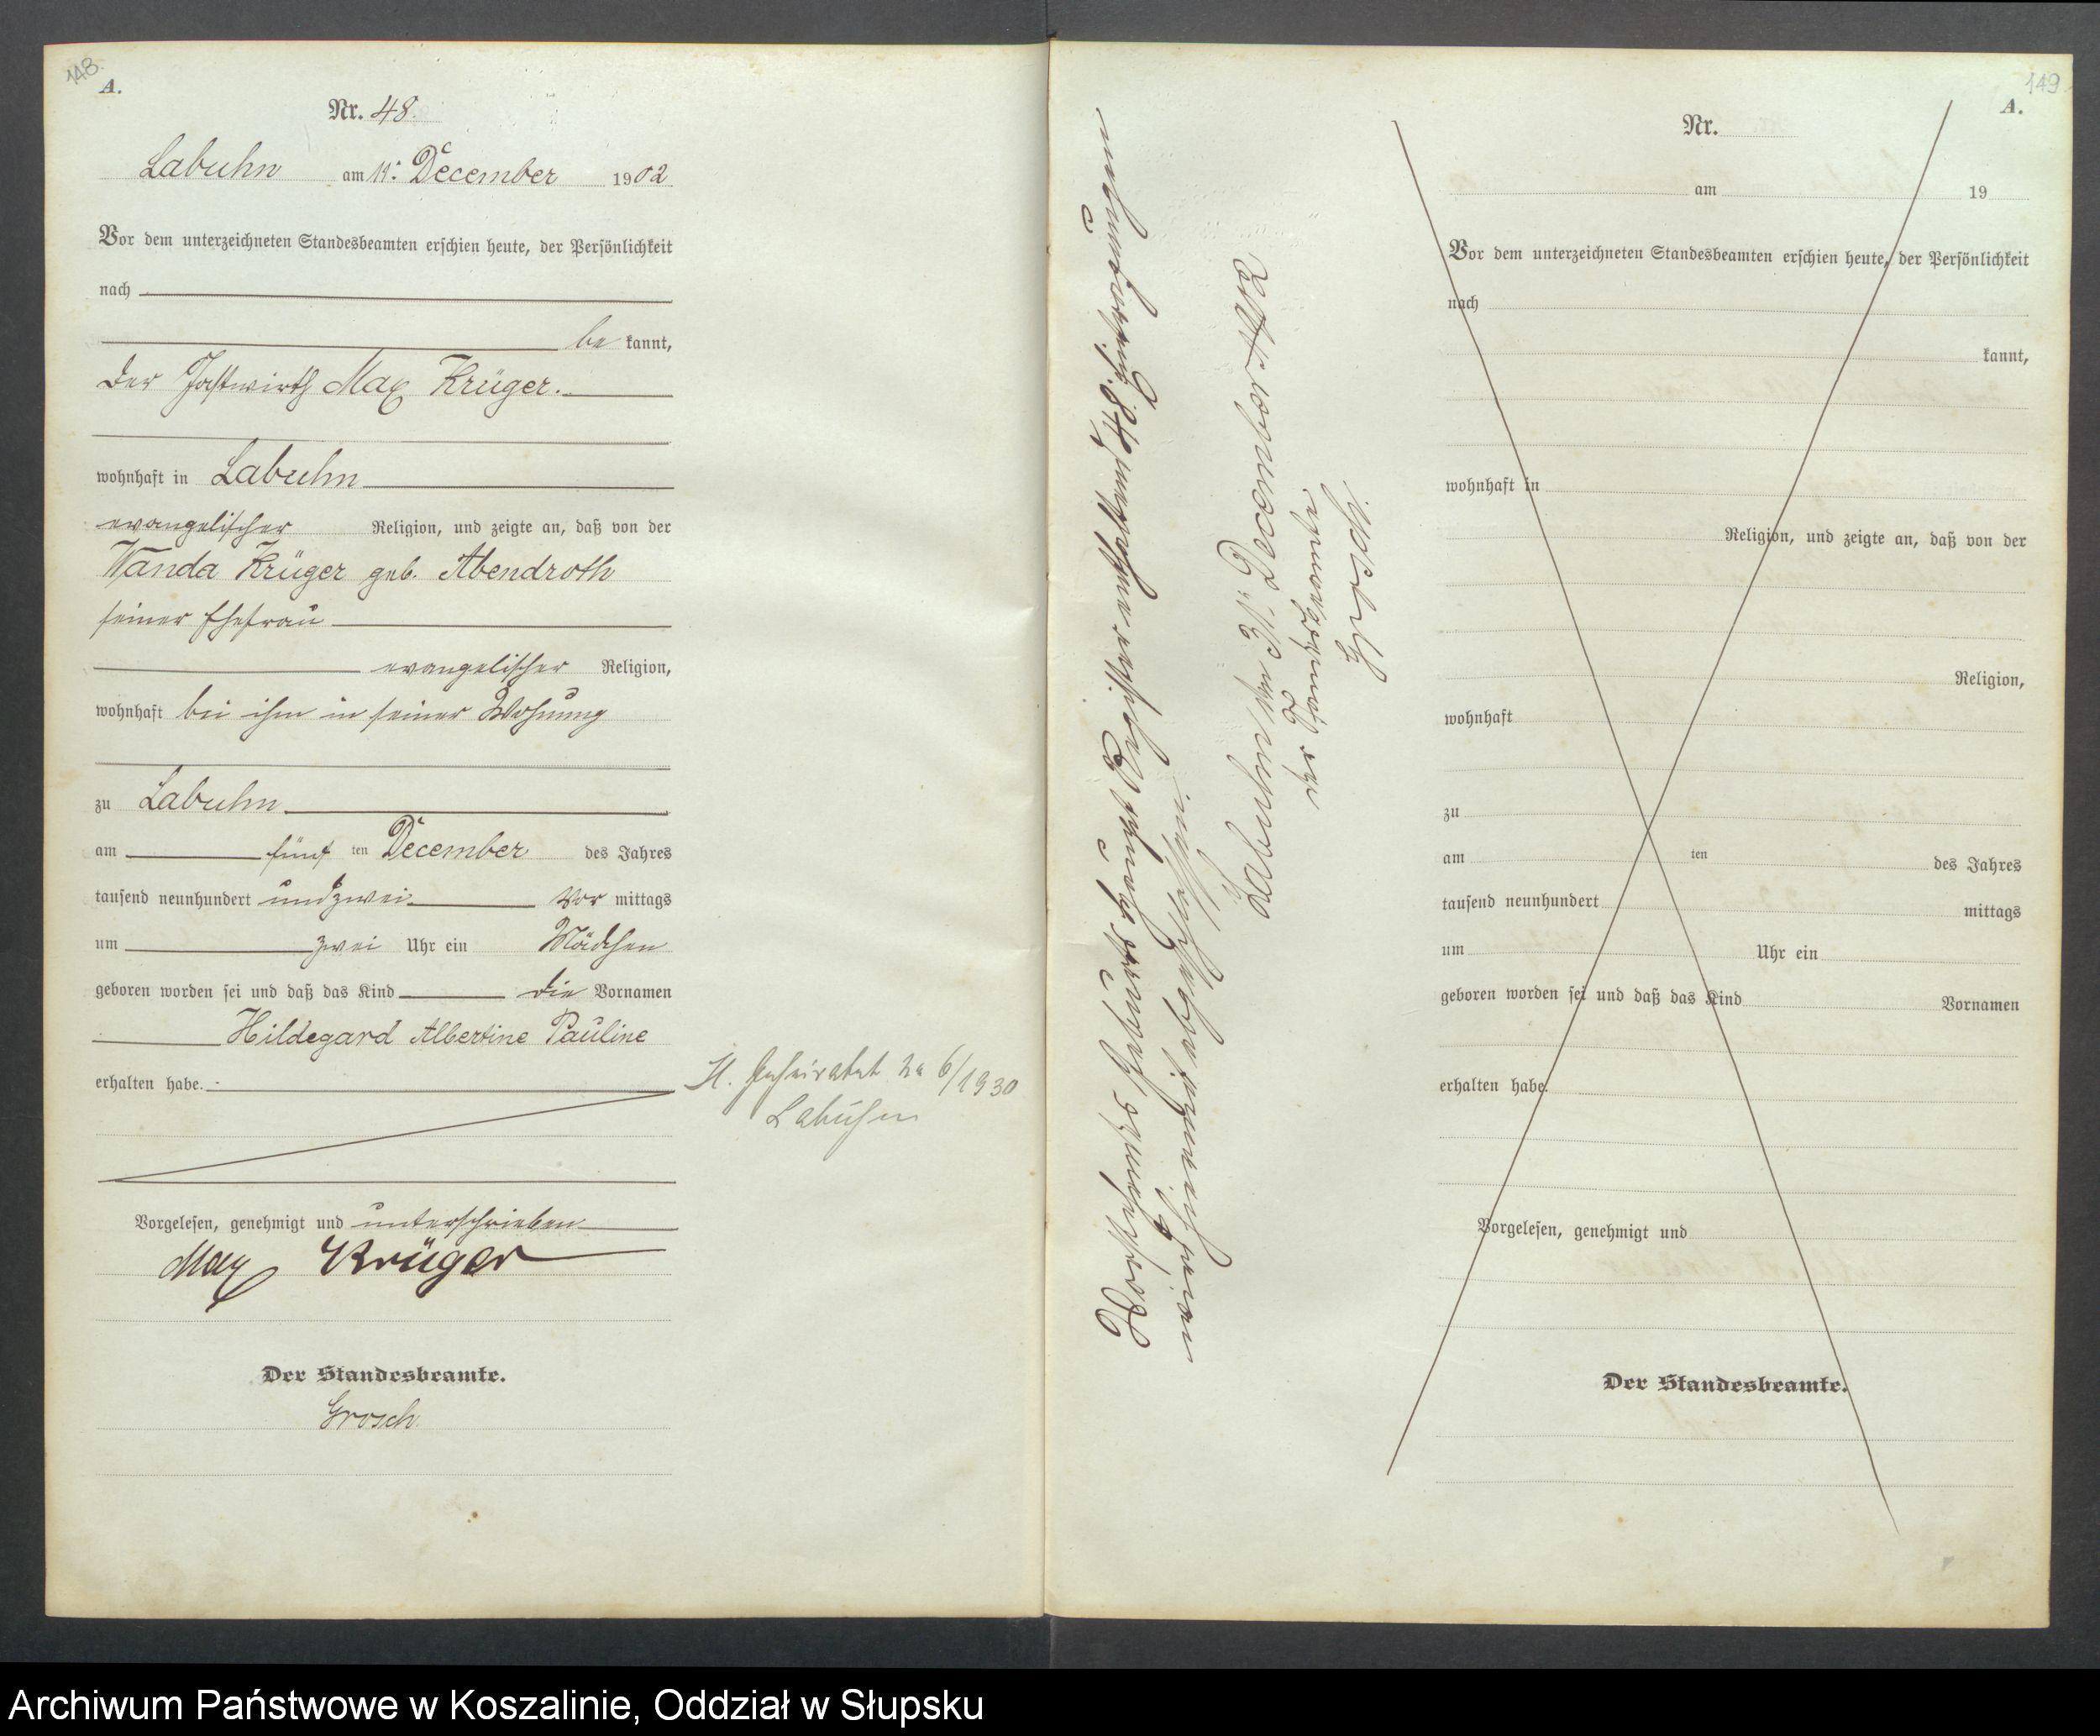 148.
A.
Nr. 48.
Labuhn am 11. December 1902
Vor dem unterzeichneten Standesbeamten erschien heute, der Persönlichkeit
nach
be kannt,
der Gastwirth Max Krüger.
wohnhaft in Labuhn
evangelischer Religion, und zeigte an, daß von der
Wanda Krüger geb. Abendroth
seiner Ehefrau
evangelischer Religion,
wohnhaft bei ihm in seiner Wohnung
zu Labuhn
am fünf ten December des Jahres
tausend neunhundert und zwei Vor mittags
um zwei Uhr ein Mädchen
geboren worden sei und daß das Kind die Vornamen
Hildegard Albertine Pauline
erhalten habe.
H. Geheiratet No 6/1930
Labuhn
Vorgelesen, genehmigt und unterschrieben
Max Krüger
Der Standesbeamte.
Grosch.
Vorstehendes Geburts Haupt Register enthaltend 48 Eintragungen
wird hiermit abgeschlossen
Labuhn den 31. December 1902
der Standesbeamte
Grosch.
149.
A.
Nr.
am 19
Vor dem unterzeichneten Standesbeamten erschien heute, der Persönlichkeit
nach
kannt,
wohnhaft in
Religion, und zeigte an, daß von der
Religion,
wohnhaft
zu
am ten des Jahres
tausend neunhundert mittags
um Uhr ein
geboren worden sei und daß das Kind Vornamen
erhalten habe.
Vorgelesen, genehmigt und
Der Standesbeamte.
Archiwum Państwowe w Koszalinie, Oddział w Słupsku